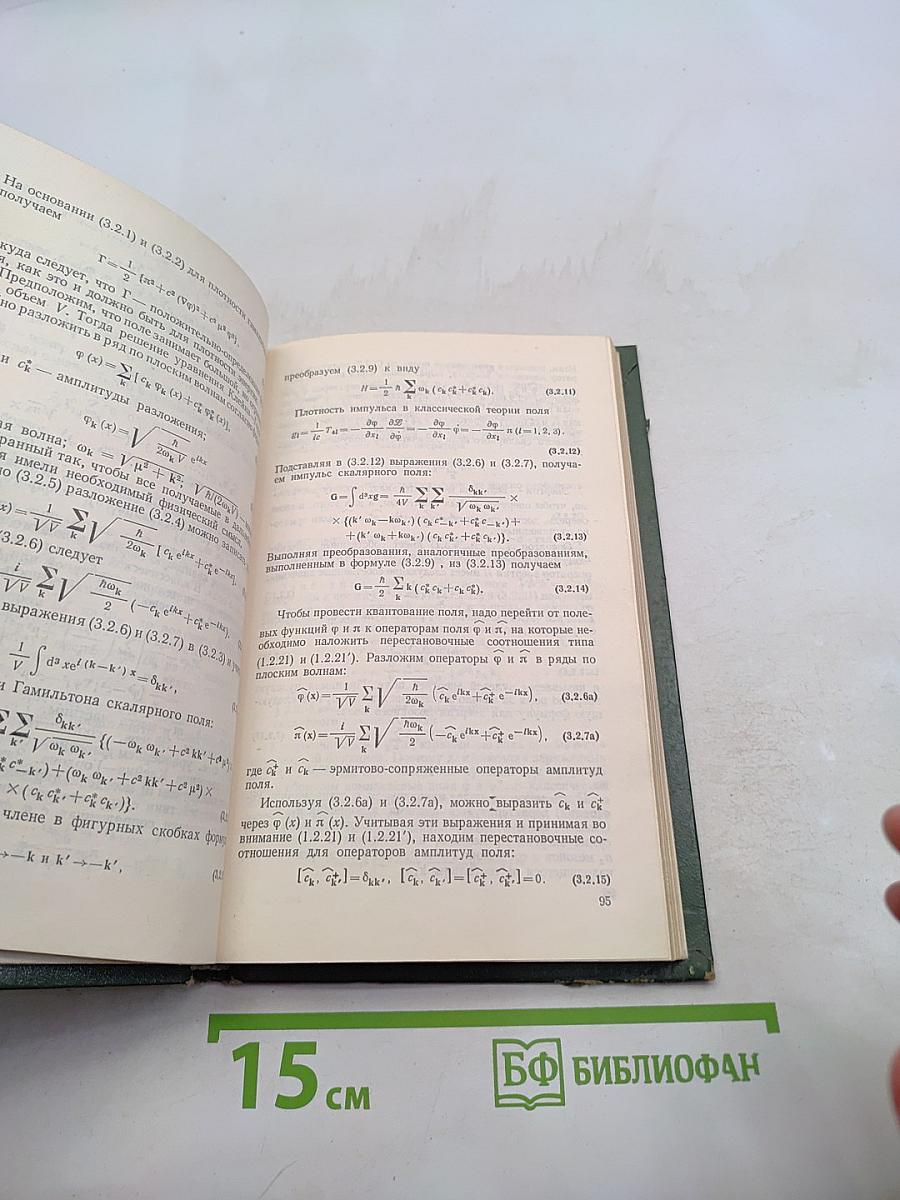 На основании (3.2.1) и (3.2.2) для плотности
получаем
Г=1/2 {π²+c² (∇φ)²+c² μ² φ²},
куда следует, что Г — положительно-определен
я, как это и должно быть для плотности энергии.
Предположим, что поле занимает большой, но
объем V. Тогда решение уравнения Клейна
но разложить в ряд по плоским волнам согласно
φ (x)=∑ₖ [cₖ φₖ (x)+cₖ* φₖ* (x)],
и cₖ* — амплитуды разложения;
φₖ (x)=√(ħ/2ωₖ V) e^{ikx}
ая волна; ωₖ = √μ²+k²;
ранный так, чтобы все получаемые в дальней
я имели необходимый физический смысл.
о (3.2.5) разложение (3.2.4) можно записать
x)=1/√V ∑ₖ √(ħ/2ωₖ) [cₖ e^{ikx}+cₖ* e^{−ikx}],
3.2.6) следует
i/√V ∑ₖ √(ħωₖ/2) (−cₖ e^{ikx}+cₖ* e^{−ikx}),
выражения (3.2.6) и (3.2.7) в (3.2.3) и
1/V ∫ d³ x e^{i (k−k′) x}=δₖₖ′,
и Гамильтона скалярного поля:
∑ ∑ₖ′ δₖₖ′/√ωₖ ωₖ′ {(−ωₖ ωₖ′+c² kk′+c² μ²)
c*₋ₖ′)+(ωₖ ωₖ′+c² kk′+c² μ²)×
×(cₖ cₖ*′+cₖ* cₖ′)}.
члене в фигурных скобках форму
→−k и k′→−k′,
преобразуем (3.2.9) к виду
H=1/2 ħ ∑ₖ ωₖ (cₖ cₖ*+cₖ* cₖ). (3.2.11)
Плотность импульса в классической теории поля
gₗ=1/ic T₄ₗ=−∂φ/∂xₗ ∂ℒ/∂φ̇=−∂φ/∂xₗ φ̇=−∂φ/∂xₗ π (l=1, 2, 3).
(3.2.12)
Подставляя в (3.2.12) выражения (3.2.6) и (3.2.7), получа-
ем импульс скалярного поля:
G=∫ d³xg=ħ/4V ∑ₖ ∑ₖ′ δₖₖ′/√ωₖ ωₖ′ ×
×{(k′ ωₖ−kωₖ′) (cₖ c*₋ₖ′+cₖ* c₋ₖ′)+
+(k′ ωₖ+kωₖ′) (cₖ cₖ*′+cₖ* cₖ′)}. (3.2.13)
Выполняя преобразования, аналогичные преобразованиям,
выполненным в формуле (3.2.9) , из (3.2.13) получаем
G=ħ/2 ∑ₖ k (cₖ* cₖ+cₖ cₖ*). (3.2.14)
Чтобы провести квантование поля, надо перейти от поле-
вых функций φ и π к операторам поля φ̂ и π̂, на которые не-
обходимо наложить перестановочные соотношения типа
(1.2.21) и (1.2.21′). Разложим операторы φ̂ и π̂ в ряды по
плоским волнам:
φ̂ (x)=1/√V ∑ₖ √(ħ/2ωₖ) (ĉₖ e^{ikx}+ĉₖ⁺ e^{−ikx}), (3.2.6а)
π̂ (x)=i/√V ∑ₖ √(ħωₖ/2) (−ĉₖ e^{ikx}+ĉₖ⁺ e^{−ikx}), (3.2.7а)
где ĉₖ⁺ и ĉₖ — эрмитово-сопряженные операторы амплитуд
поля.
Используя (3.2.6а) и (3.2.7а), можно выразить ĉₖ и ĉₖ⁺
через φ̂ (x) и π̂ (x). Учитывая эти выражения и принимая во
внимание (1.2.21) и (1.2.21′), находим перестановочные со-
отношения для операторов амплитуд поля:
[ĉₖ, ĉₖ⁺′]=δₖₖ′, [ĉₖ, ĉₖ′]=[ĉₖ⁺, ĉₖ⁺′]=0. (3.2.15)
95
15 см
БФ БИБЛИОФАН